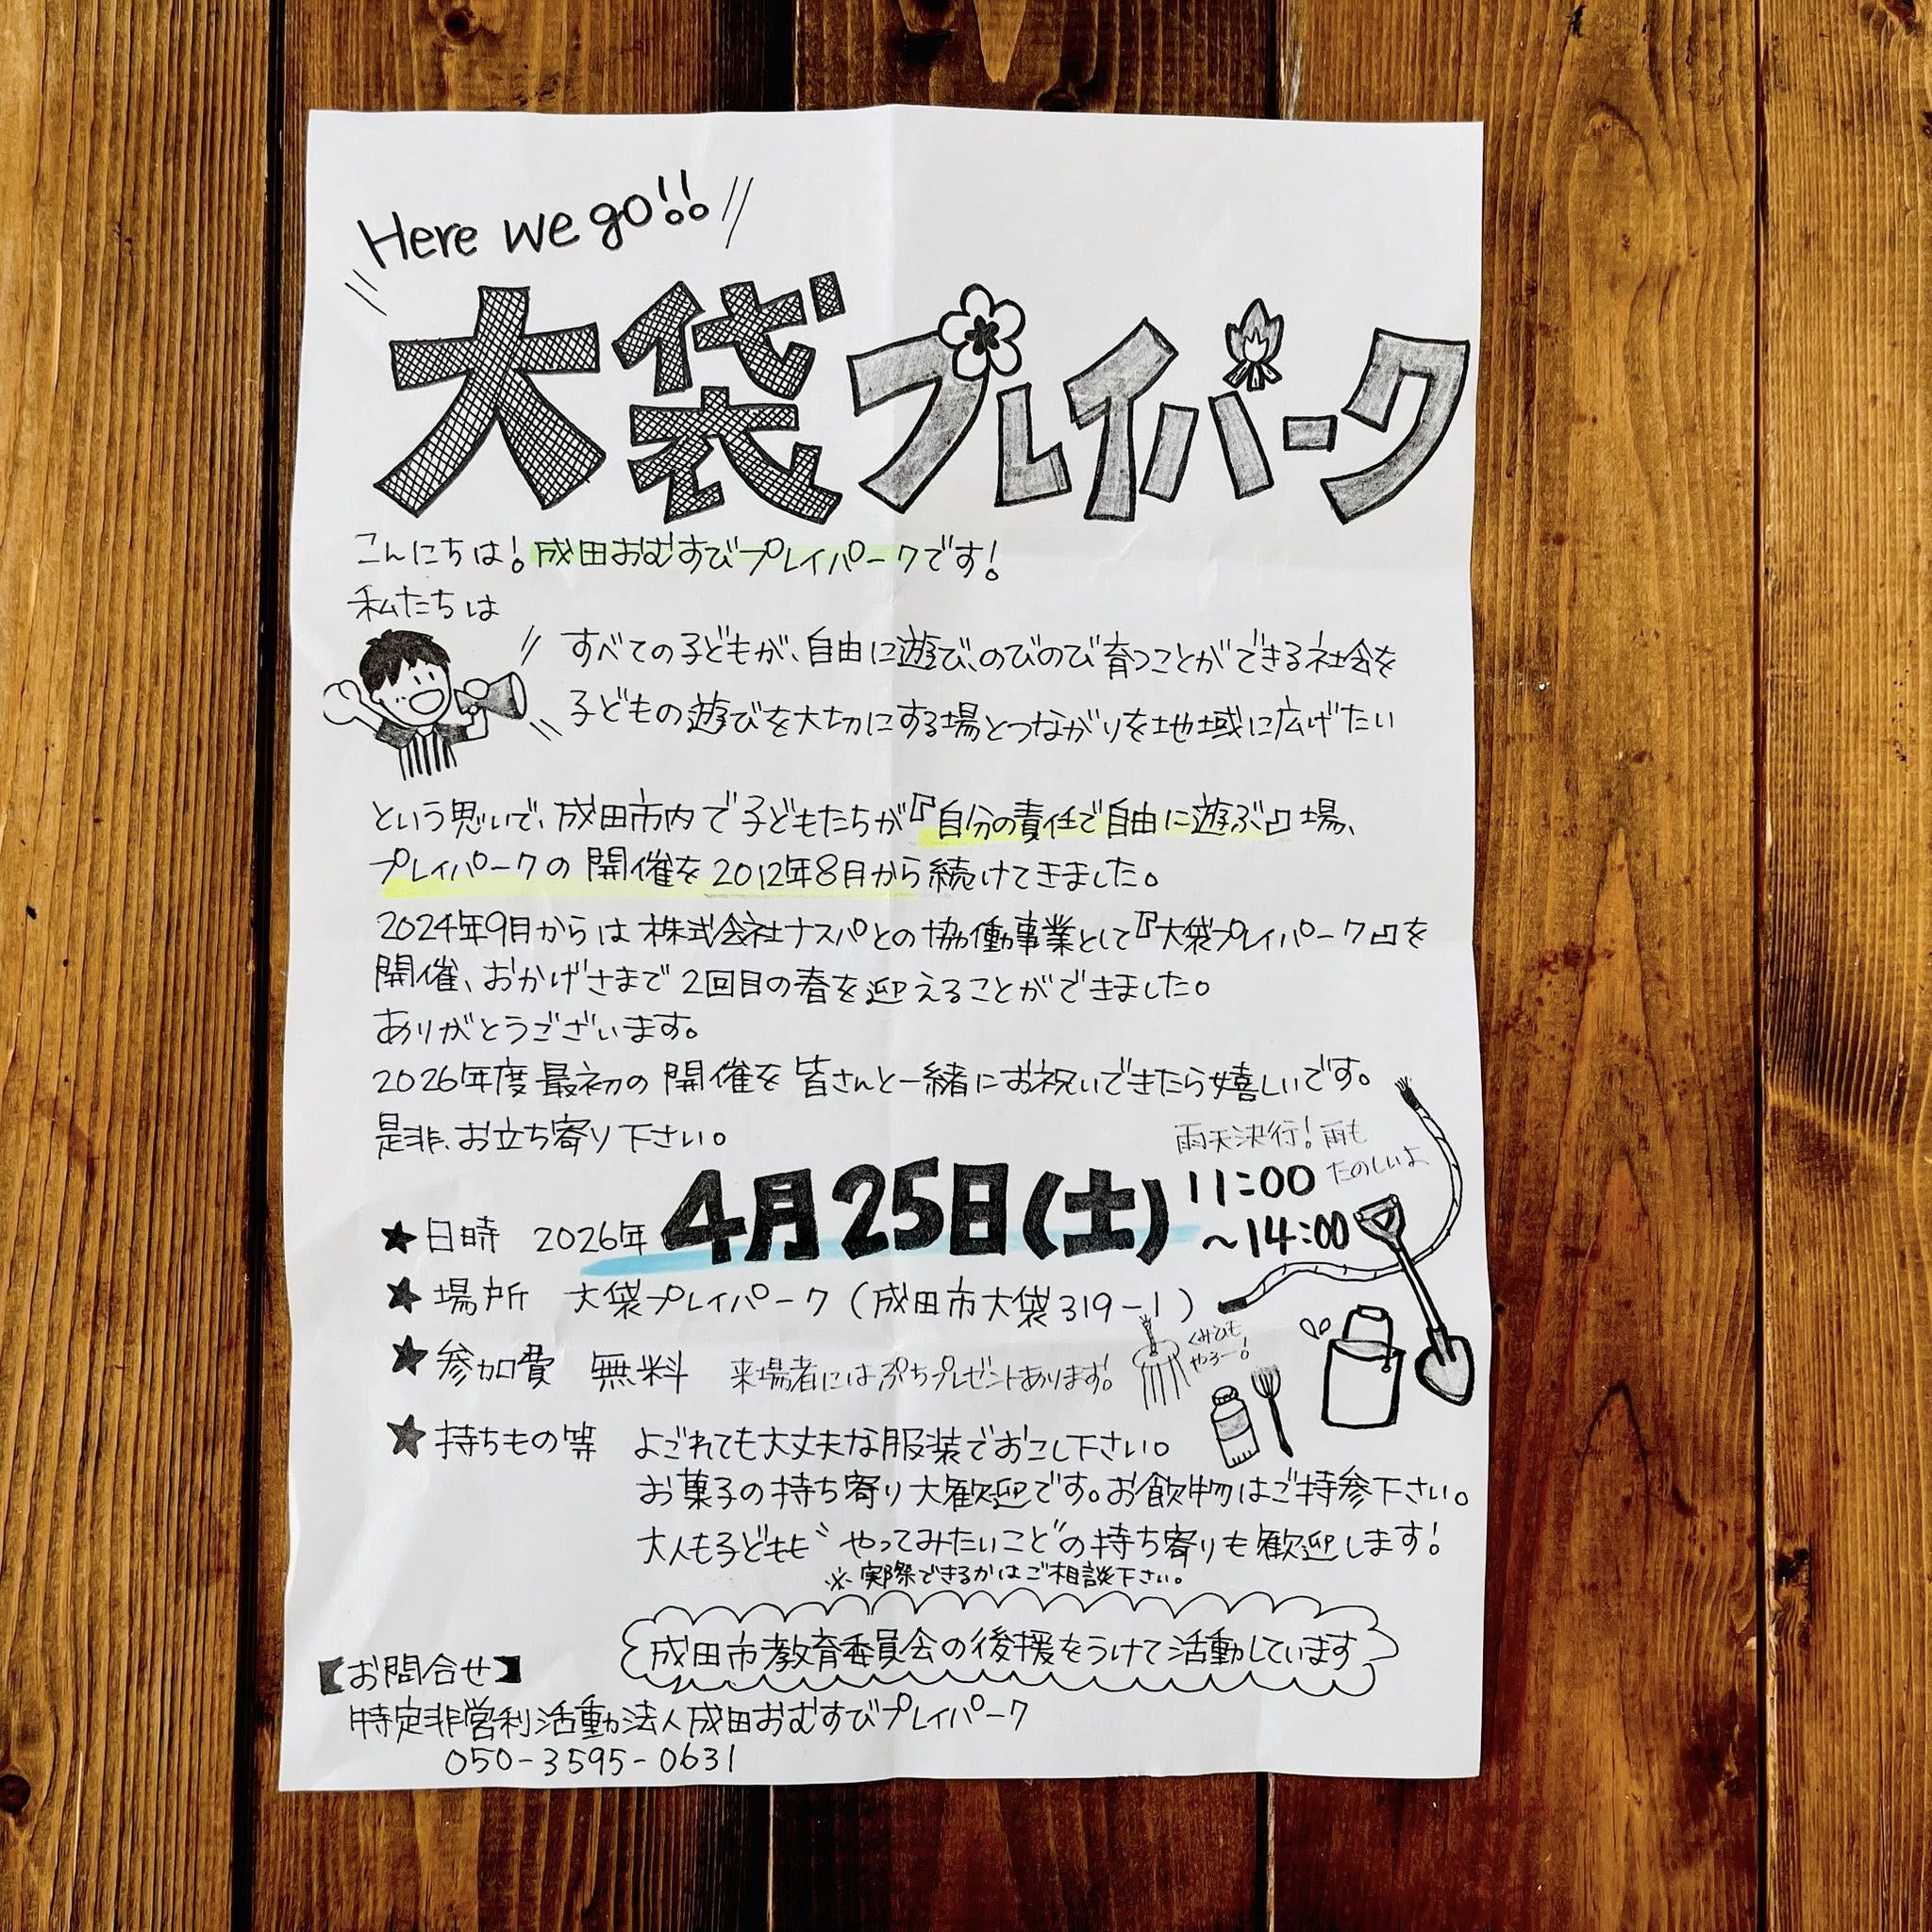 Here we go!!
大袋プレイパーク
こんにちは！成田おむすびプレイパークです！
私たちは
すべての子どもが、自由に遊び、のびのび育つことができる社会を
子どもの遊びを大切にする場とつながりを地域に広げたい
という思いで、成田市内で子どもたちが『自分の責任で自由に遊ぶ』場、
プレイパークの開催を2012年8月から続けてきました。
2024年9月からは株式会社ナスパとの協働事業として『大袋プレイパーク』を
開催、おかげさまで2回目の春を迎えることができました。
ありがとうございます。
2026年度最初の開催を皆さんと一緒にお祝いできたら嬉しいです。
是非、お立ち寄り下さい。
雨天決行！雨も
たのしいよ
★日時 2026年 4月25日(土) 11:00
～14:00
★場所 大袋プレイパーク（成田市大袋319-1）
★参加費 無料 来場者にはぷちプレゼントあります！
くみひも
やろー！
★持ちもの等 よごれても大丈夫な服装でおこし下さい。
お菓子の持ち寄り大歓迎です。お飲物はご持参下さい。
大人も子どもも〝やってみたいこと〟の持ち寄りも歓迎します！
※実際できるかはご相談下さい。
成田市教育委員会の後援をうけて活動しています
【お問合せ】
特定非営利活動法人成田おむすびプレイパーク
050-3595-0631